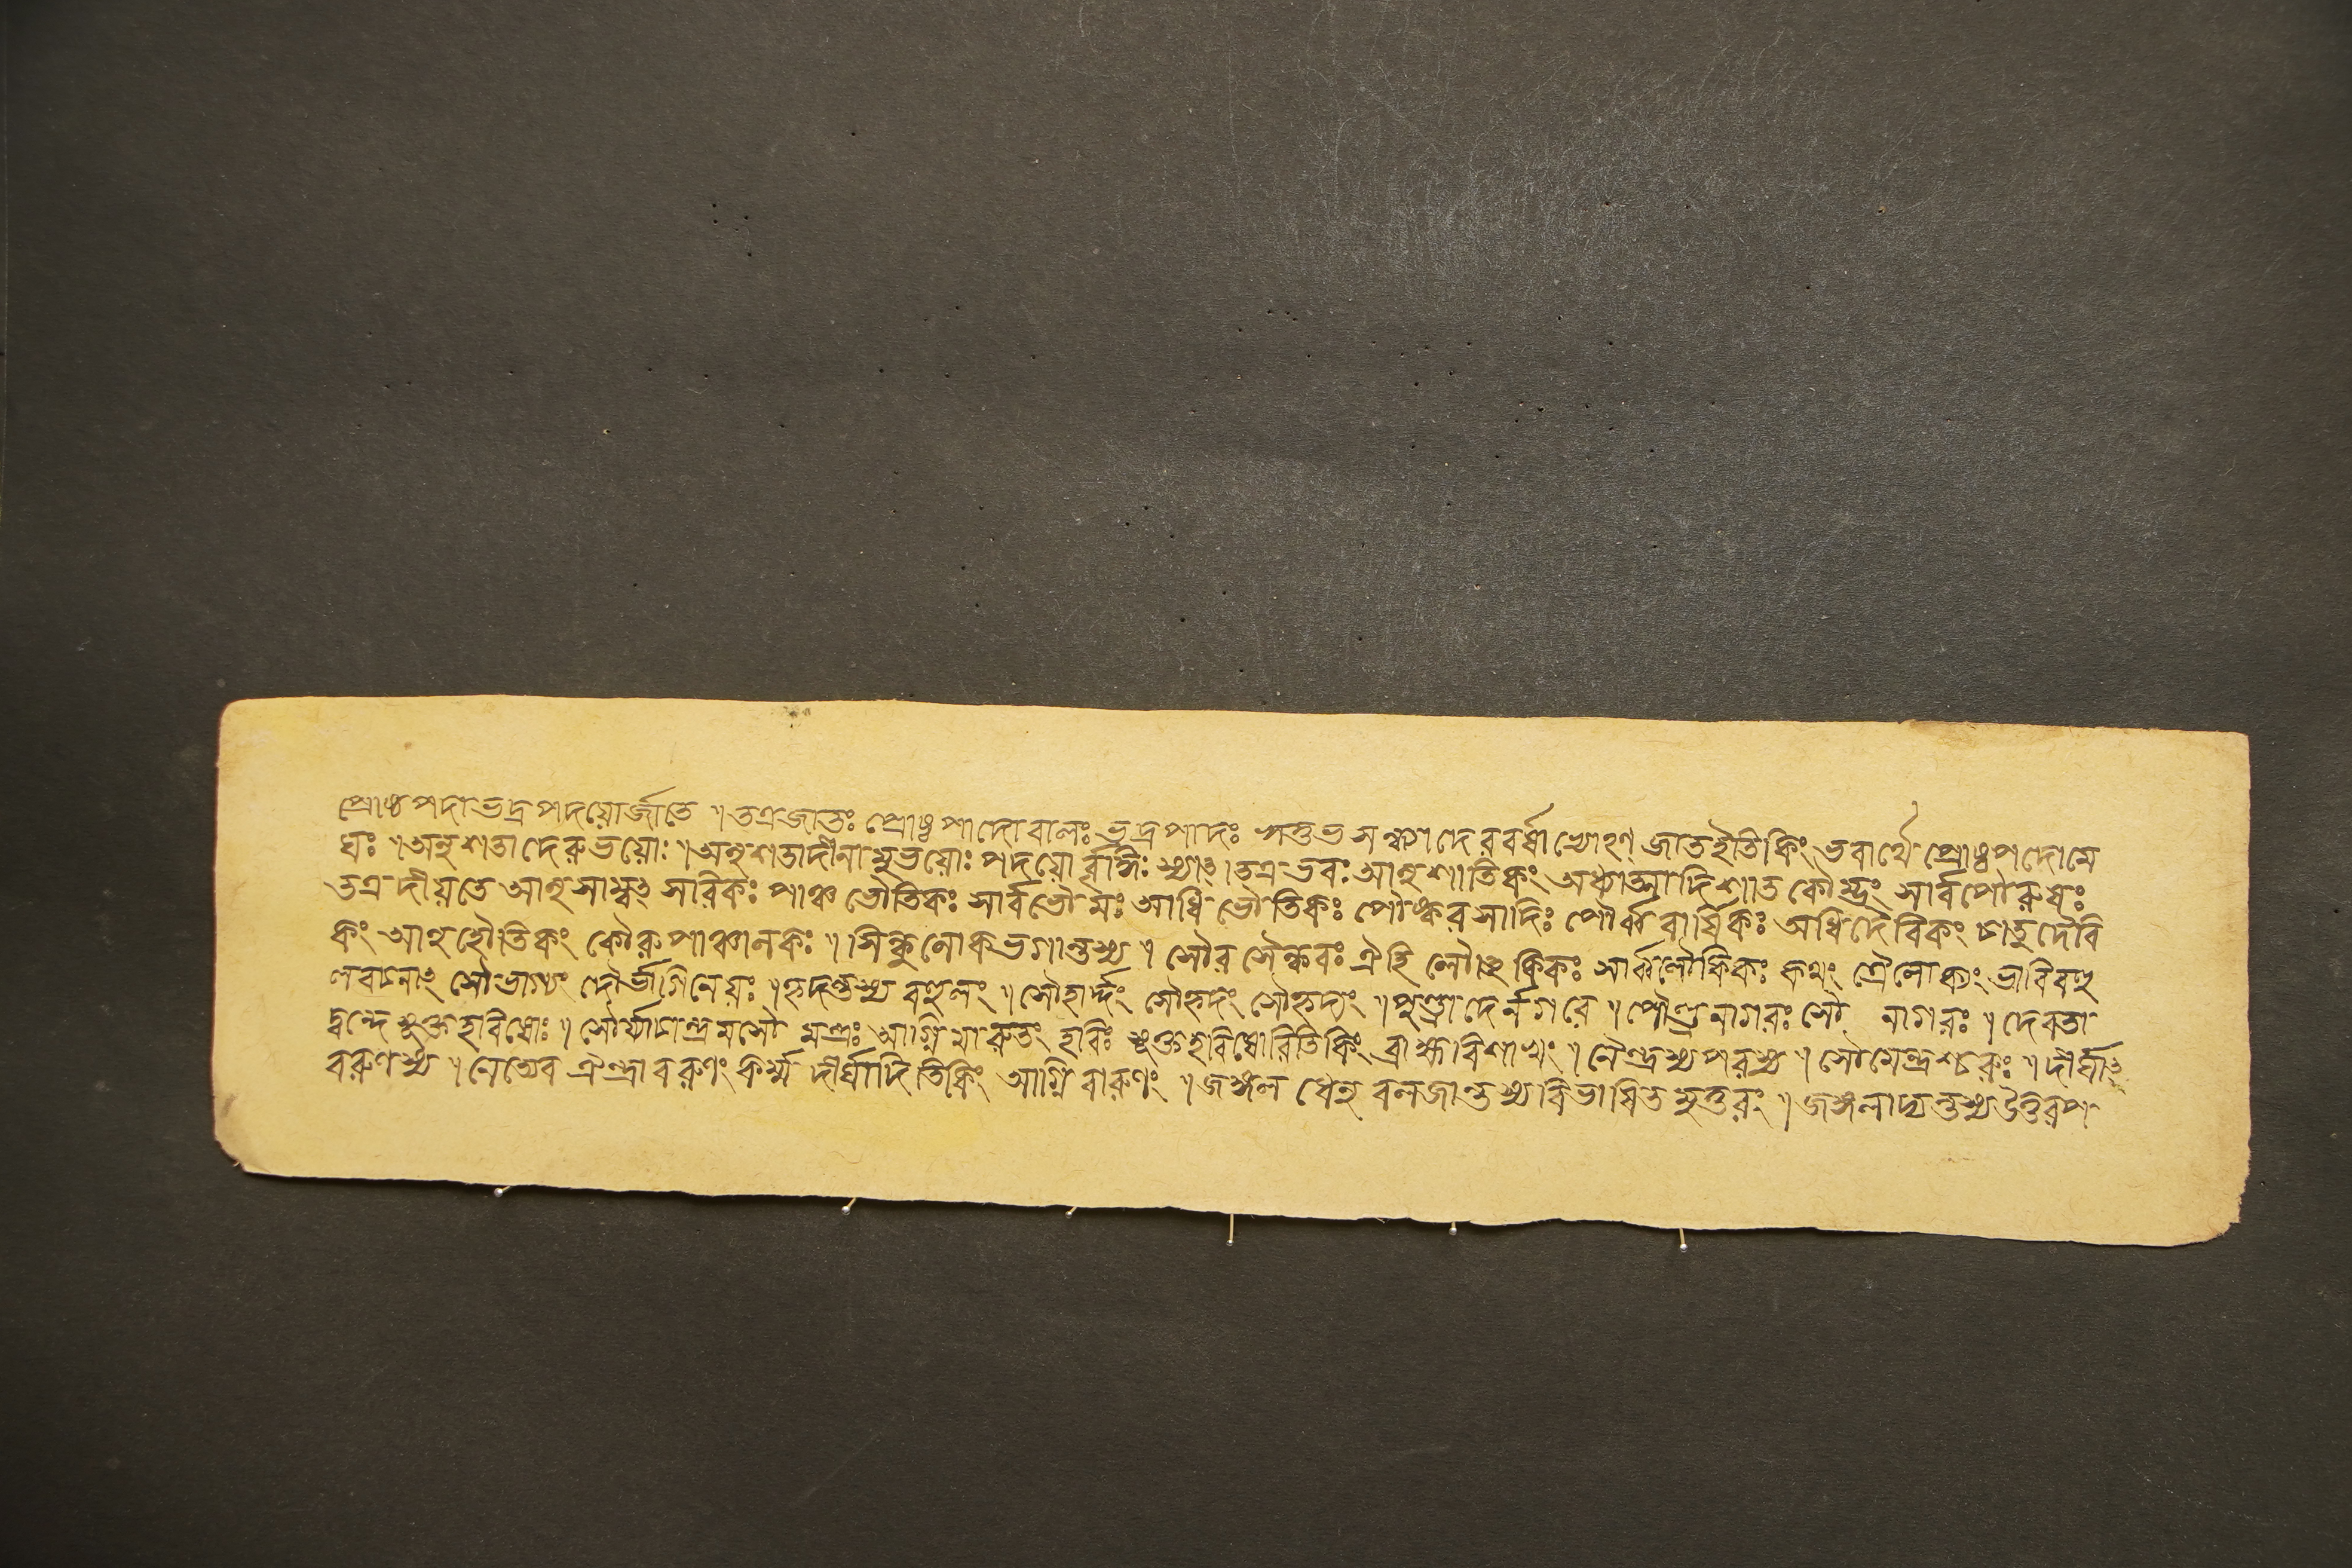 প্রোষ্ঠপদাভদ্রপদয়োর্জাতে ৷ তত্রজাতঃ প্রোষ্ঠপাদোবালঃ ভদ্রপাদঃ ঋতুভ সন্ধ্যাদেরবর্ষাখোহণ্ জাতইতিকিং ভবার্থে প্রোষ্ঠপদোমে
ঘঃ ৷ অনুশতাদেরুভয়োঃ ৷ অনুশতাদীনামুভয়োঃ পদয়োর্ব্বৃদ্ধিঃ স্যাৎ ৷ তত্র ভবঃ আনুশাতিকং অধ্যাত্মাদি শাত কৌম্ভং সার্বপৌরুষঃ
তত্র দীয়তে আনুসাম্বৎসরিকঃ পাঞ্চভৌতিকঃ সার্বভৌমঃ আধিভৌতিকঃ পৌষ্করসাদিঃ পৌর্ব্ববার্ষিকঃ অধিদৈবিকং চাতুর্দৈবি
কিং আনুহৌতিকং কৌরুপাঞ্চালকঃ ৷ সিন্ধুলোকভগান্তস্য ৷ সৌর সৈন্ধবঃ ঐহি লৌকিকঃ সার্ব্বলৌকিকঃ কথং ত্রৈলোক্যং ভাবিবহু
লবচনাৎ সৌভাগ্যং দৌর্ভাগিনেয়ঃ ৷ হৃদন্তস্য বহুলং ৷ সৌহার্দ্দং সৌহৃদং সৌহৃদ্যং ৷ পুণ্ড্রাদের্নগরে ৷ পৌণ্ড্রনাগরঃ সৌ নাগরঃ ৷ দেবতা
দ্বন্দে সূক্তহবিষোঃ ৷ সৌর্য্যাচান্দ্রমসৌ মন্ত্রঃ আগ্নিমারুতং হবিঃ সূক্তহবিষোরিতিকিং ব্রাহ্মবিশাখং ৷ নৈন্দ্রস্যপরস্য ৷ সৌমেন্দ্রশ্চরুঃ ৷ দীর্ঘাৎ
বরুণস্য ৷ নেত্যেব ঐন্দ্রাবরুণং কর্ম্ম দীর্ঘাদিতিকিং আগ্নিবারুণং ৷ জঙ্গল ধেনু বলজান্তস্য বিভাষিতমুত্তরং ৷ জঙ্গলাদ্যন্তস্যউত্তরপ